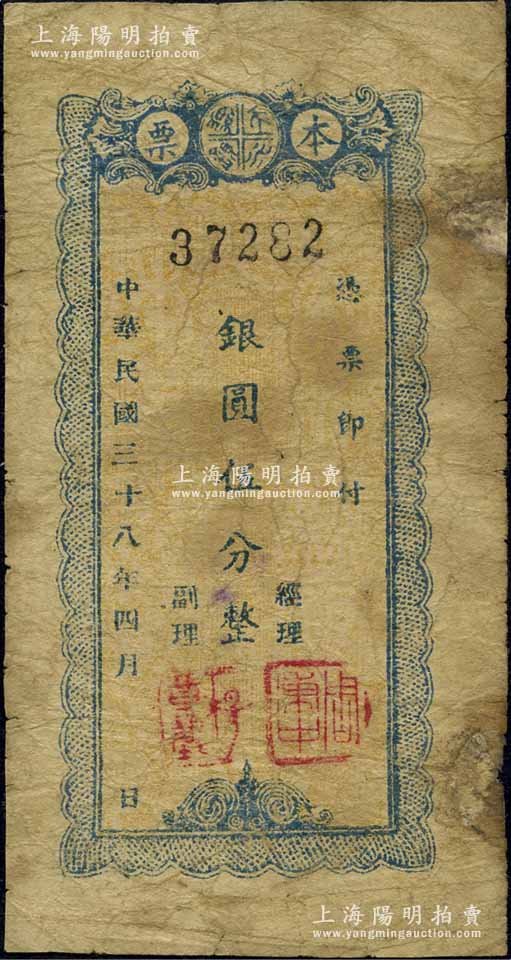 上海陽明拍賣
www.yangmingauction.com
本票
37282
憑票即付
銀圓伍分整
經理
副理
中華民國三十八年四月 日
上海陽明拍賣
www.yangmingauction.com
上海陽明拍賣
www.yangmingauction.com